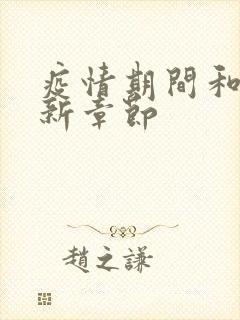 疫情期間和
新章節
趙之謙